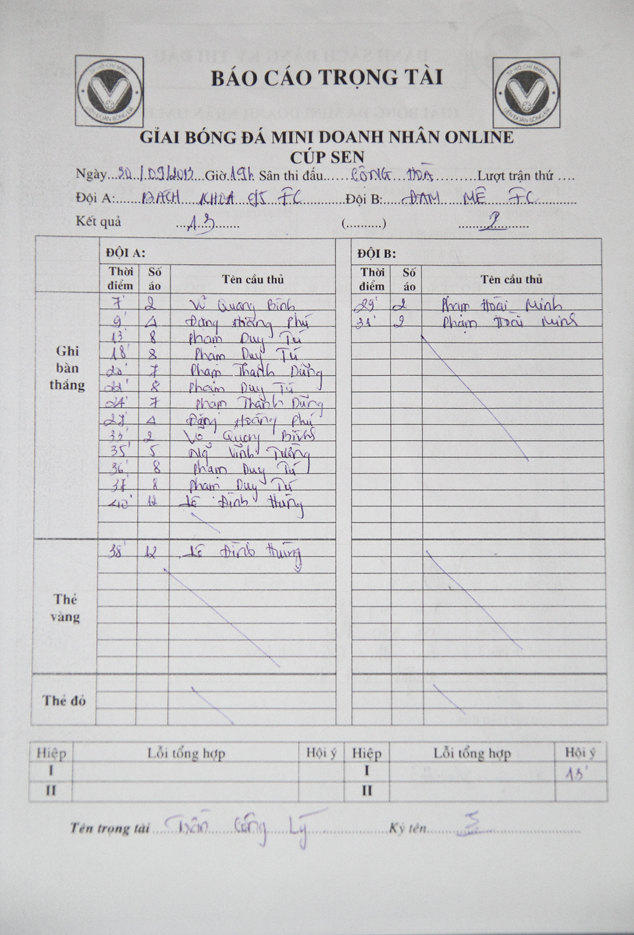 BÁO CÁO TRỌNG TÀI
GIẢI BÓNG ĐÁ MINI DOANH NHÂN ONLINE
CÚP SEN
Ngày...30/09/2013...Giờ.19h. Sân thi đấu......CỘNG HOÀ......Lượt trận thứ ....
Đội A:......BÁCH KHOA FC......Đội B:...ĐAM MÊ FC......
Kết quả ...13...... (..........) ......2......
ĐỘI A: ĐỘI B:
Thời điểm Số áo Tên cầu thủ Thời điểm Số áo Tên cầu thủ
Ghi bàn thắng
7' 2 Võ Quang Bình 29' 2 Phạm Hoài Minh
9' 4 Đặng Hoàng Phú 31' 2 Phạm Hoài Minh
13' 8 Phạm Duy Tú
18' 8 Phạm Duy Tú
20' 7 Phạm Thanh Dũng
22' 8 Phạm Duy Tú
24' 7 Phạm Thanh Dũng
27' 4 Đặng Hoàng Phú
33' 2 Võ Quang Bình
35' 5 Ngô Vĩnh Tường
36' 8 Phạm Duy Tú
37' 8 Phạm Duy Tú
40' 12 Lê Đình Hưng
Thẻ vàng
38' 12 Lê Đình Hưng
Thẻ đỏ
Hiệp Lỗi tổng hợp Hội ý Hiệp Lỗi tổng hợp Hội ý
I I 15'
II II
Tên trọng tài Trần Công Lý Ký tên